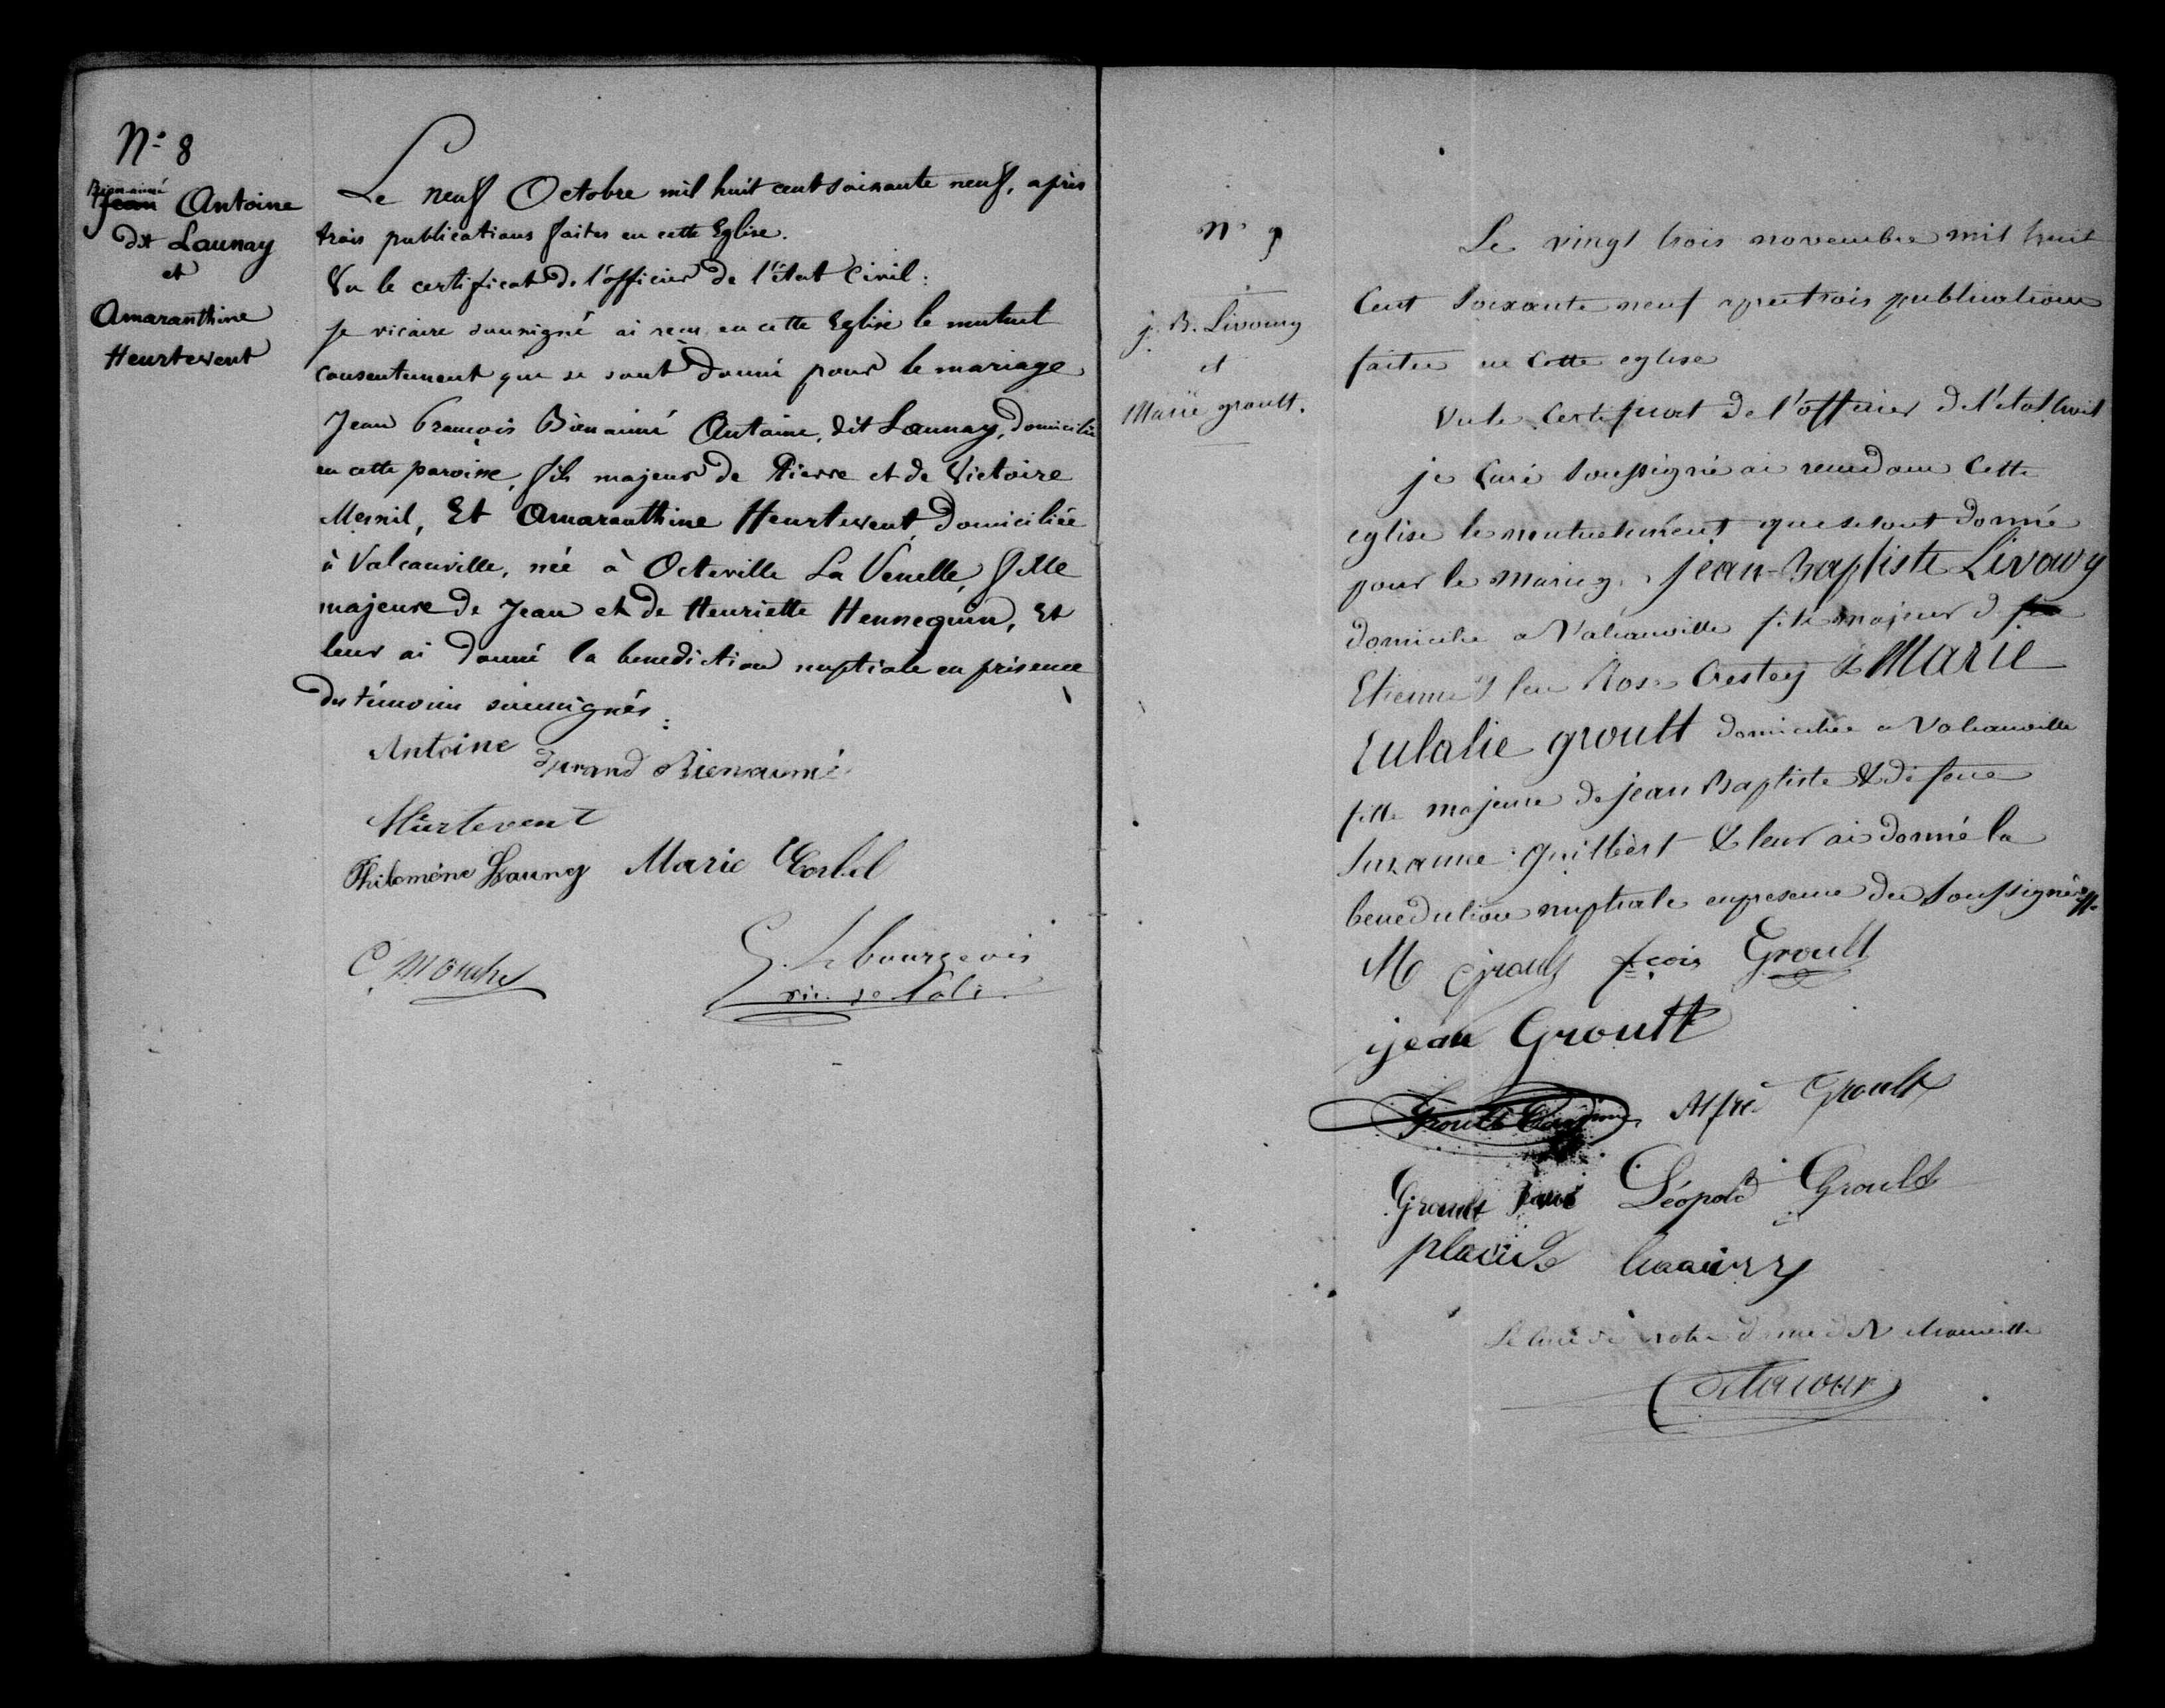 N° 8
Bienaimé
Jean Antoine
dit Launay
et
Amaranthine
Heurtevent
Le neuf Octobre mil huit cent soixante neuf, après
trois publications faites en cette Eglise.
Vu le certificat de l'officier de l'état Civil:
Je vicaire soussigné ai reçu en cette Eglise le mutuel
consentement que se sont donné pour le mariage
Jean François Bienaimé Antoine, dit Launay, domicilié
en cette paroisse, fils majeur de Pierre et de Victoire
Mesnil, Et Amaranthine Heurtevent, domiciliée
à Valcanville, née à Octeville La Venelle, fille
majeure de Jean et de Henriette Hennequin, Et
leur ai donné la benediction nuptiale en présence
des témoins soussignés:
Antoine Durand Bienaimé
Hurtevent
Philomène Launy Marie
C.
G. Lebourgeois
vic.
N° 9
j. B. Livoury
et
Marie groult.
Le vingt trois novembre mil huit
Cent soixante neuf apres trois publications
faites en Cette eglise
Vu le Certificat de l'officier de l'état Civil
je Curé soussigné ai recu dans Cette
eglise le mutuel que se sont donné
pour le mariag jean-Baptiste Livoury
domicilié a Valcanville fils majeur d feu
Etienne & feu Rose Crestey & Marie
Eulalie groult domiciliée a Valcanville
fille majeure de jean Baptiste & de feue
Suzanne guilbert & leur ai donné la
benediction nuptiale en presence des soussignés
M Groult fçois Groult
jean Groult
Groult Alfré Groult
Groult Léopold Groult
placide
Le Curé de notre dame de
Delacour